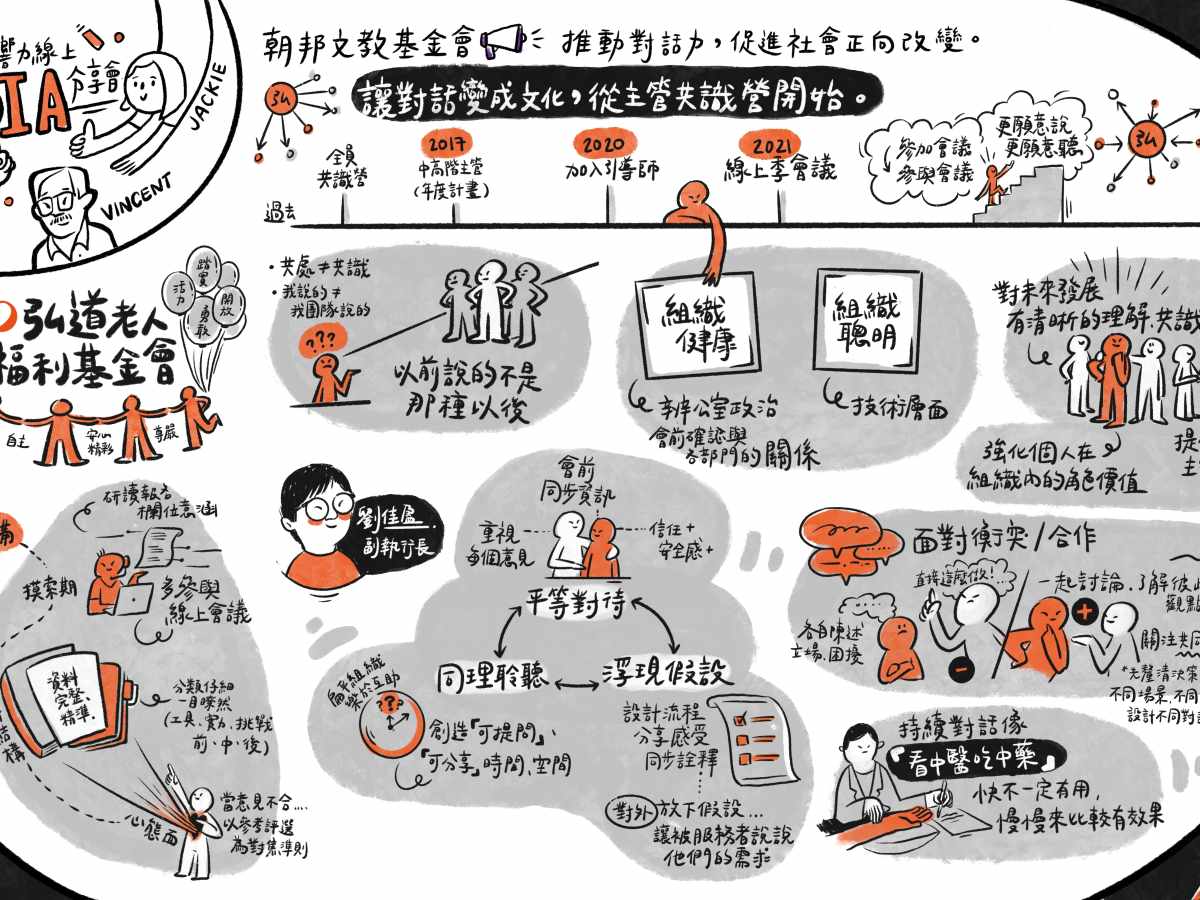 響力線上
DIA
分享會
JACKIE
VINCENT
朝邦文教基金會
推動對話力，促進社會正向改變。
弘
讓對話變成文化，從主管共識營開始。
全員
共識營
2017
中高階主管
(年度計畫)
2020
加入引導師
2021
線上季會議
參加會議
參與會議
更願意說
更願意聽
弘
過去
踏實
活力
開放
勇敢
弘道老人
福利基金會
自主
安心
精彩
尊嚴
・共處≠共識
・我說的≠
我團隊說的
???
以前說的不是
那種以後
組織
健康
組織
聰明
辦公室政治
會前確認與
各部門的關係
技術層面
對未來發展
有清晰的理解、共識
強化個人在
組織內的角色價值
提
主
研讀報告
欄位意涵
摸索期
多參與
線上會議
資料
完整、
精準.
分類仔細
一目瞭然
(工具、實力、挑戰
前、中、後)
結構
心態面
當意見不合....
以參考評選
為對焦準則
劉佳盈
副執行長
會前
同步資訊
重視
每個意見
信任+
安全感+
平等對待
同理聆聽
浮現假設
扁平組織
樂於互助
???
創造「可提問」、
「可分享」時間、空間
設計流程
分享感受
同步詮釋
對外 放下假設...
讓被服務者說說
他們的需求
面對衝突/合作
直接這麼做!...
各自陳述
立場、困擾
一起討論、了解彼此
觀點
關注共同
*先釐清決策
不同場景、不同
設計不同對話
持續對話像
「看中醫吃中藥」
快不一定有用，
慢慢來比較有效果